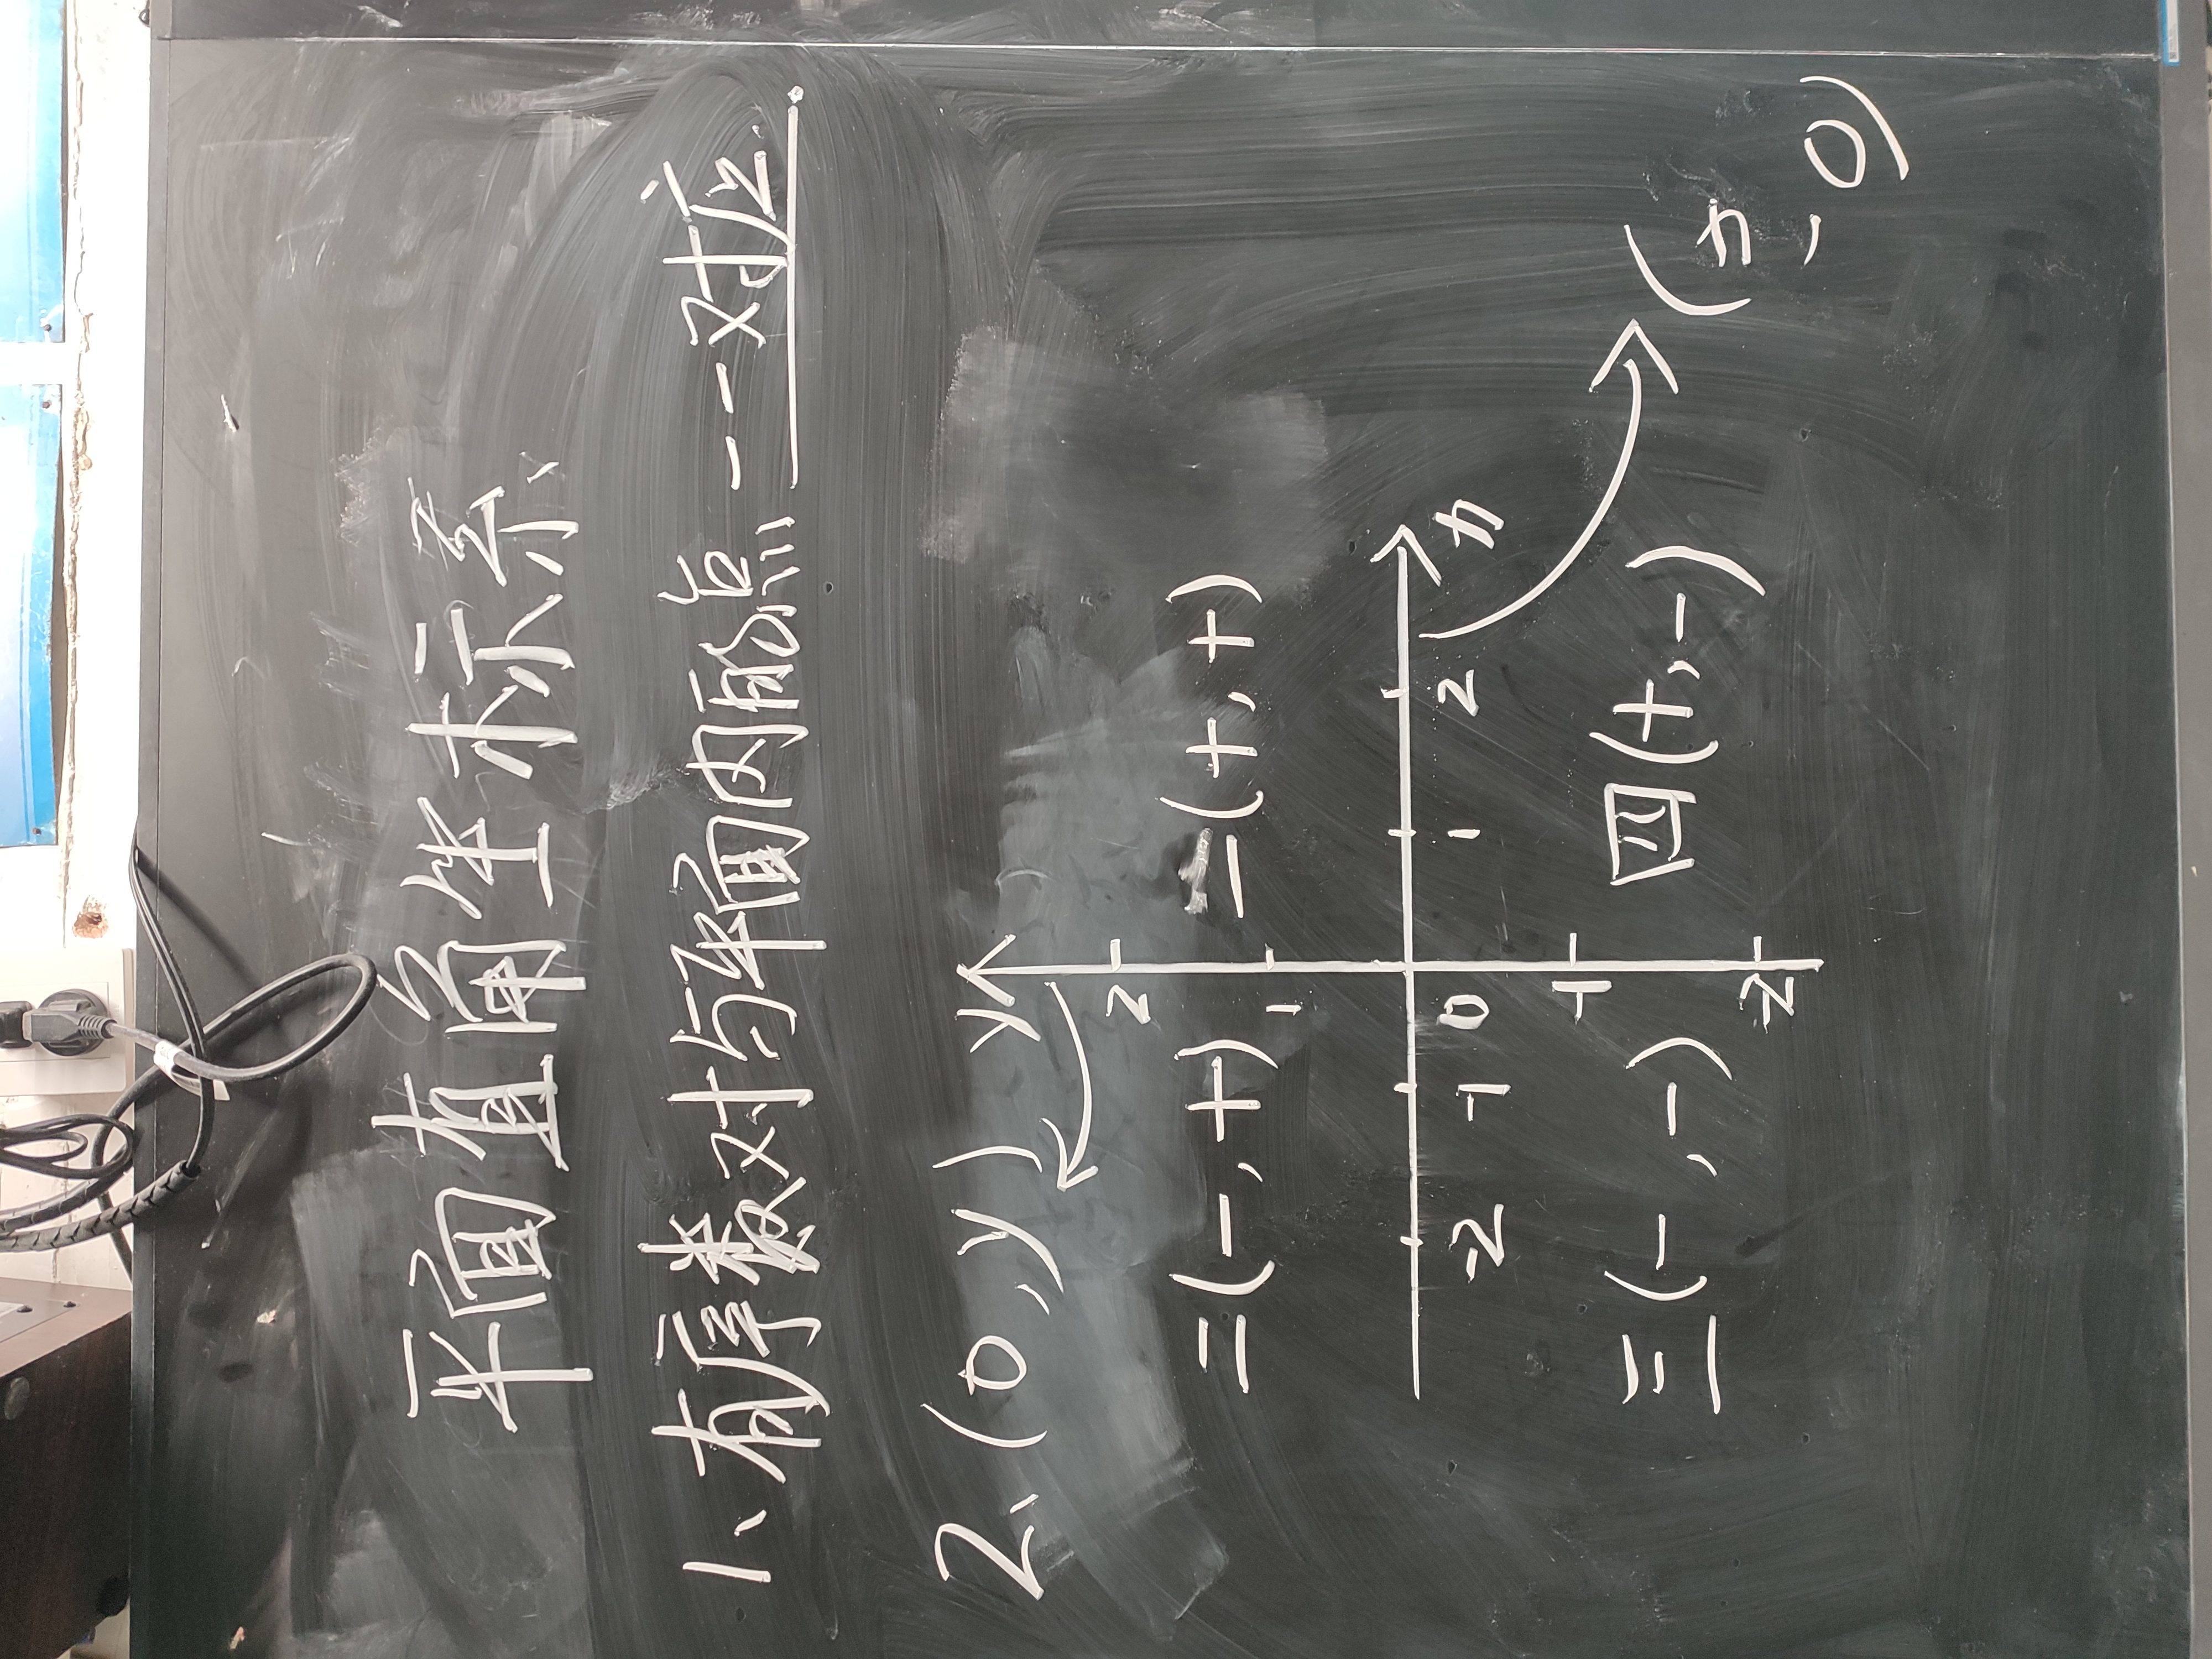 平面直角坐标系
1、有序数对与平面内的点一一对应
2、(0,y) y
2
二(-,+) 一(+,+)
1
-2 -1 0 1 2 x
-1
三(-,-) 四(+,-)
-2
(x,0)